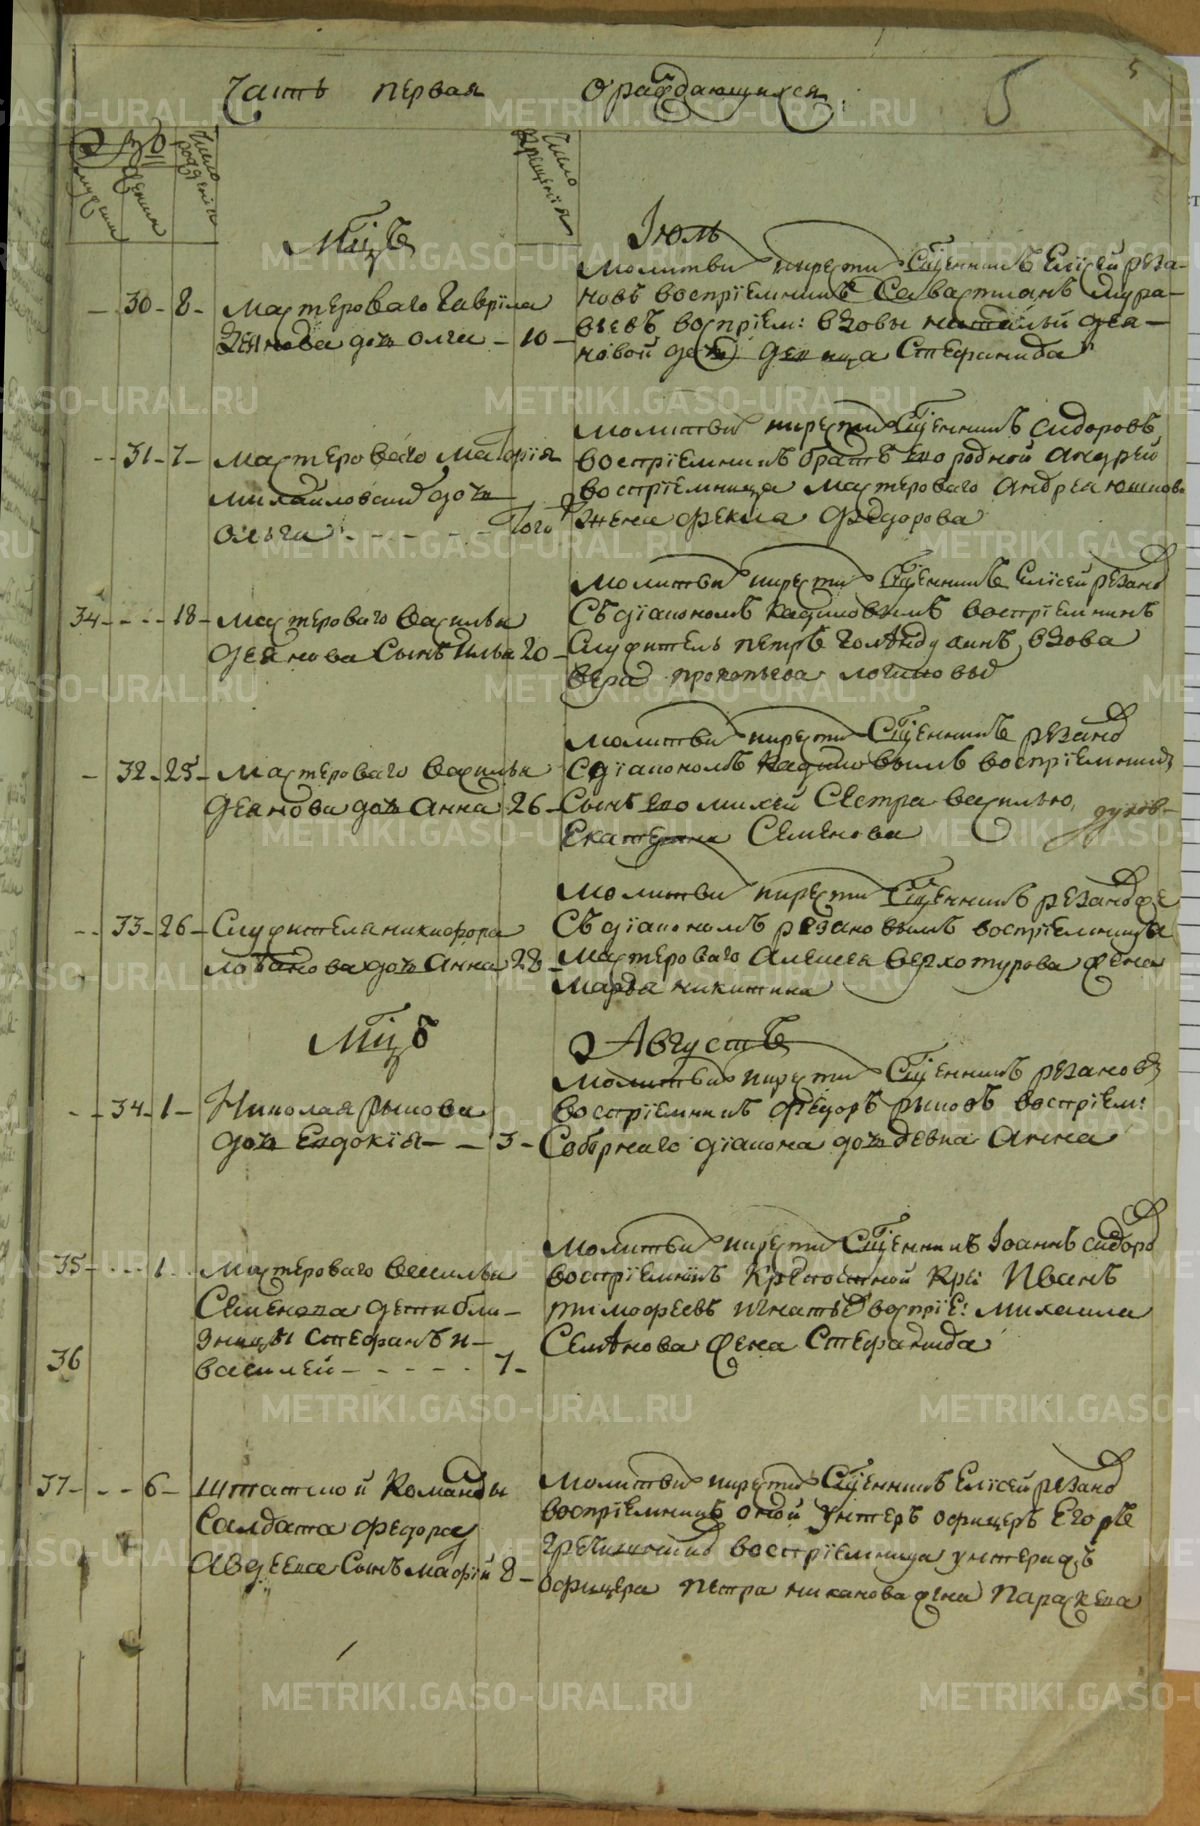 Часть первая о раждающихся
5
5
Число рождения
Число крещения
Мцъ Июль
30 - 8 - Мастероваго Гаврїла
дочь Олга - 10 -
Молитви и крести Сщенникъ Елїсей Реза-
новъ воспрїемникъ Савастианъ Мура-
вьевъ воспрїем: вдовы Натальи Дея-
новой дочь девица Стефанида
31 - 7 - Мастероваго
Михайловский дочь
Ольга - - - - - Того
Молитви и крести Сщенникъ Сидоровъ
воспрїемникъ братъ ево родной Андрей
воспрїемница мастероваго Андрея
жена Фекла Федорова
34 - - - 18 - Мастероваго Василья
Деянова сынъ Илья 20 -
Молитви и крести Сщенникъ Елїсей Резано
Съ дїакономъ воспрїемникъ
Служитель Петръ вдова
Вера Прокопьева
32 - 25 - Мастероваго Василья
Деянова дочь Анна 26 -
Молитви и крести Сщенникъ Резано
С дїакономъ воспрїемники
сынъ ево Михей сестра
Екатерина Семенова
33 - 26 - Служителя Никифора
Лобанова дочь Анна 28 -
Молитви и крести Сщенникъ Резано
Съ дїакономъ Резановымъ воспрїемница
мастероваго Алексея Верхотурова жена
Марфа Никитина
Мцъ Августъ
34 - 1 - Николая Рыкова
дочь Евдокїя - - 3 -
Молитви и крести Сщенникъ Резановъ
воспрїемникъ Федоръ Рыковъ воспрїем:
Соборнаго дїакона дочь девка Анна
35 - - - 1 - Мастероваго Василья
Семенова дети бли-
знецы Стефанъ и -
36 Василей - - - - - 7 -
Молитви и крести Сщенникъ Іоаннъ Сидоро
воспрїемникъ Иванъ
Тимофеевъ воспрїе: Михаила
Семѣнова жена Стефанида
37 - - - 6 - Штатной команды
Салдата Федора
Авдеева сынъ 8 -
Молитви и крести Сщенникъ Елїсей Резано
воспрїемникъ оной унтеръ офицеръ Егоръ
воспрїемница унтеръ
офицера Петра жена Параскева